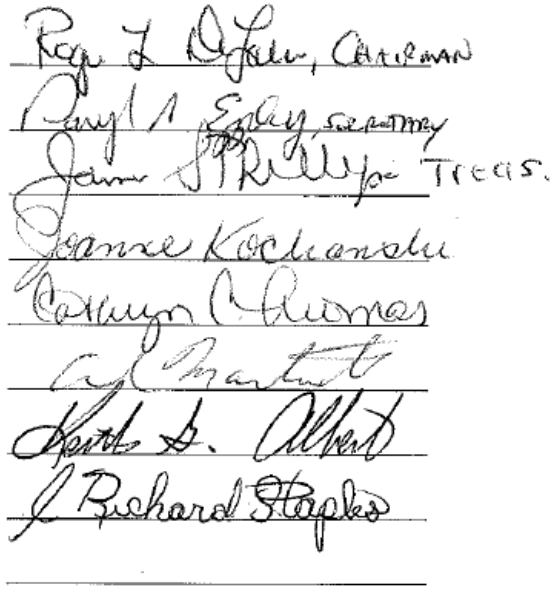 Roger L DeFalu, CHAIRMAN
Daryl A Enley, SECRETARY
James S Phillips TREAS.
Joanne Kochanski
Cathryn C. Thomas
Keith G. Albert
J Richard Staples